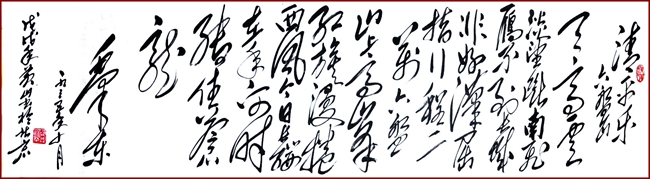 清平乐
六盘山
天高云
淡望断南飞
雁不到长城
非好汉屈
指行程二
万六盘
山上高峰
红旗漫卷
西风今日长缨
在手何时
缚住苍
龙
毛泽东
一九三五年十月
戊戌年 书于北京